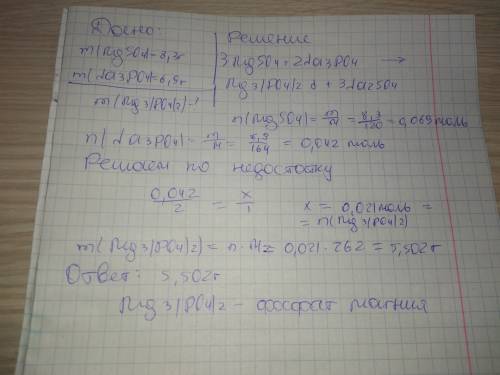 Дано:
m(MgSO4)=8,3г
m(Na3PO4=6,9г
m(Mg3(PO4)2)-?
Решение
3MgSO4+2Na3PO4 →
Mg3(PO4)2↓+3Na2SO4
n(MgSO4)=m/M=8,3/120=0,069моль
n(Na3PO4)=m/M=6,9/164=0,042 моль
Решаем по недостатку
0,042/2 = x/1 x = 0,021моль =
= n(Mg3(PO4)2)
m(Mg3(PO4)2)=n·M=0,021·262=5,502г
Ответ: 5,502г
Mg3(PO4)2 - фосфат магния